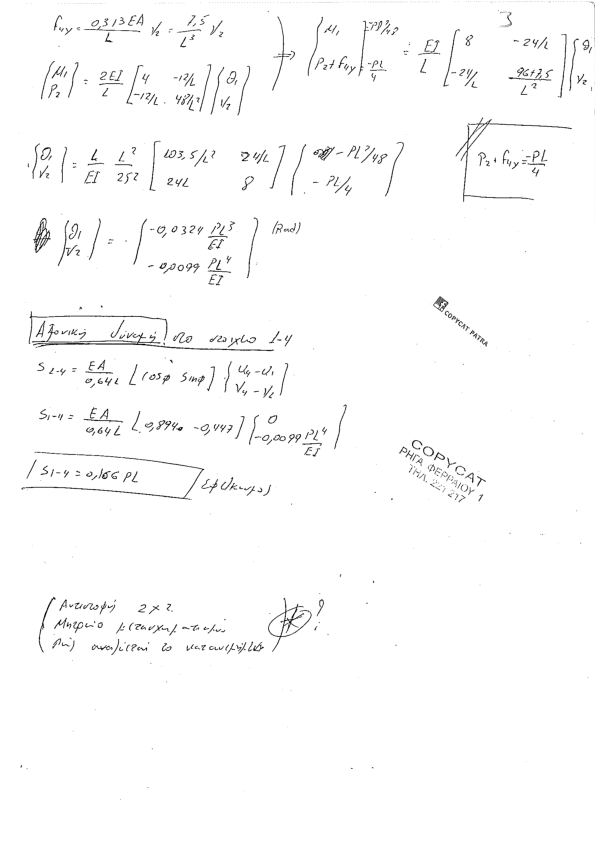 3
f₄y = 0,313EA/L V₂ = 7,5/L³ V₂
{M₁ P₂} = 2EI/L [4 -12/L -12/L 48/L²] {θ₁ V₂}
⟹ {M₁ P₂+f₄y} -PL²/48 -PL/4 = EI/L [8 -24/L -24/L 96+7,5/L²] {θ₁ V₂
{θ₁ V₂} = L/EI L²/252 [103,5/L² 24/L 24L 8] {-PL²/48 -PL/4}
P₂+f₄y = -PL/4
{θ₁ V₂} = {-0,0324 PL³/EI -0,0099 PL⁴/EI} (Rad)
COPYCAT PATRA
Αξονική δύναμη στο στοιχείο 1-4
S₂₋₄ = EA/0,64L [cosφ sinφ] {u₄-u₁ V₄-V₂}
S₁₋₄ = EA/0,64L [0,894 -0,447] {0 -0,0099 PL⁴/EI}
S₁₋₄ = 0,166 PL
COPYCAT
ΡΗΓΑ ΦΕΡΡΑΙΟΥ 1
ΤΗΛ. 221 217
Αντιστροφή 2×2
Μητρείο μετασχηματισμού
Πώς αναλύεται το κατανεμημένο
?